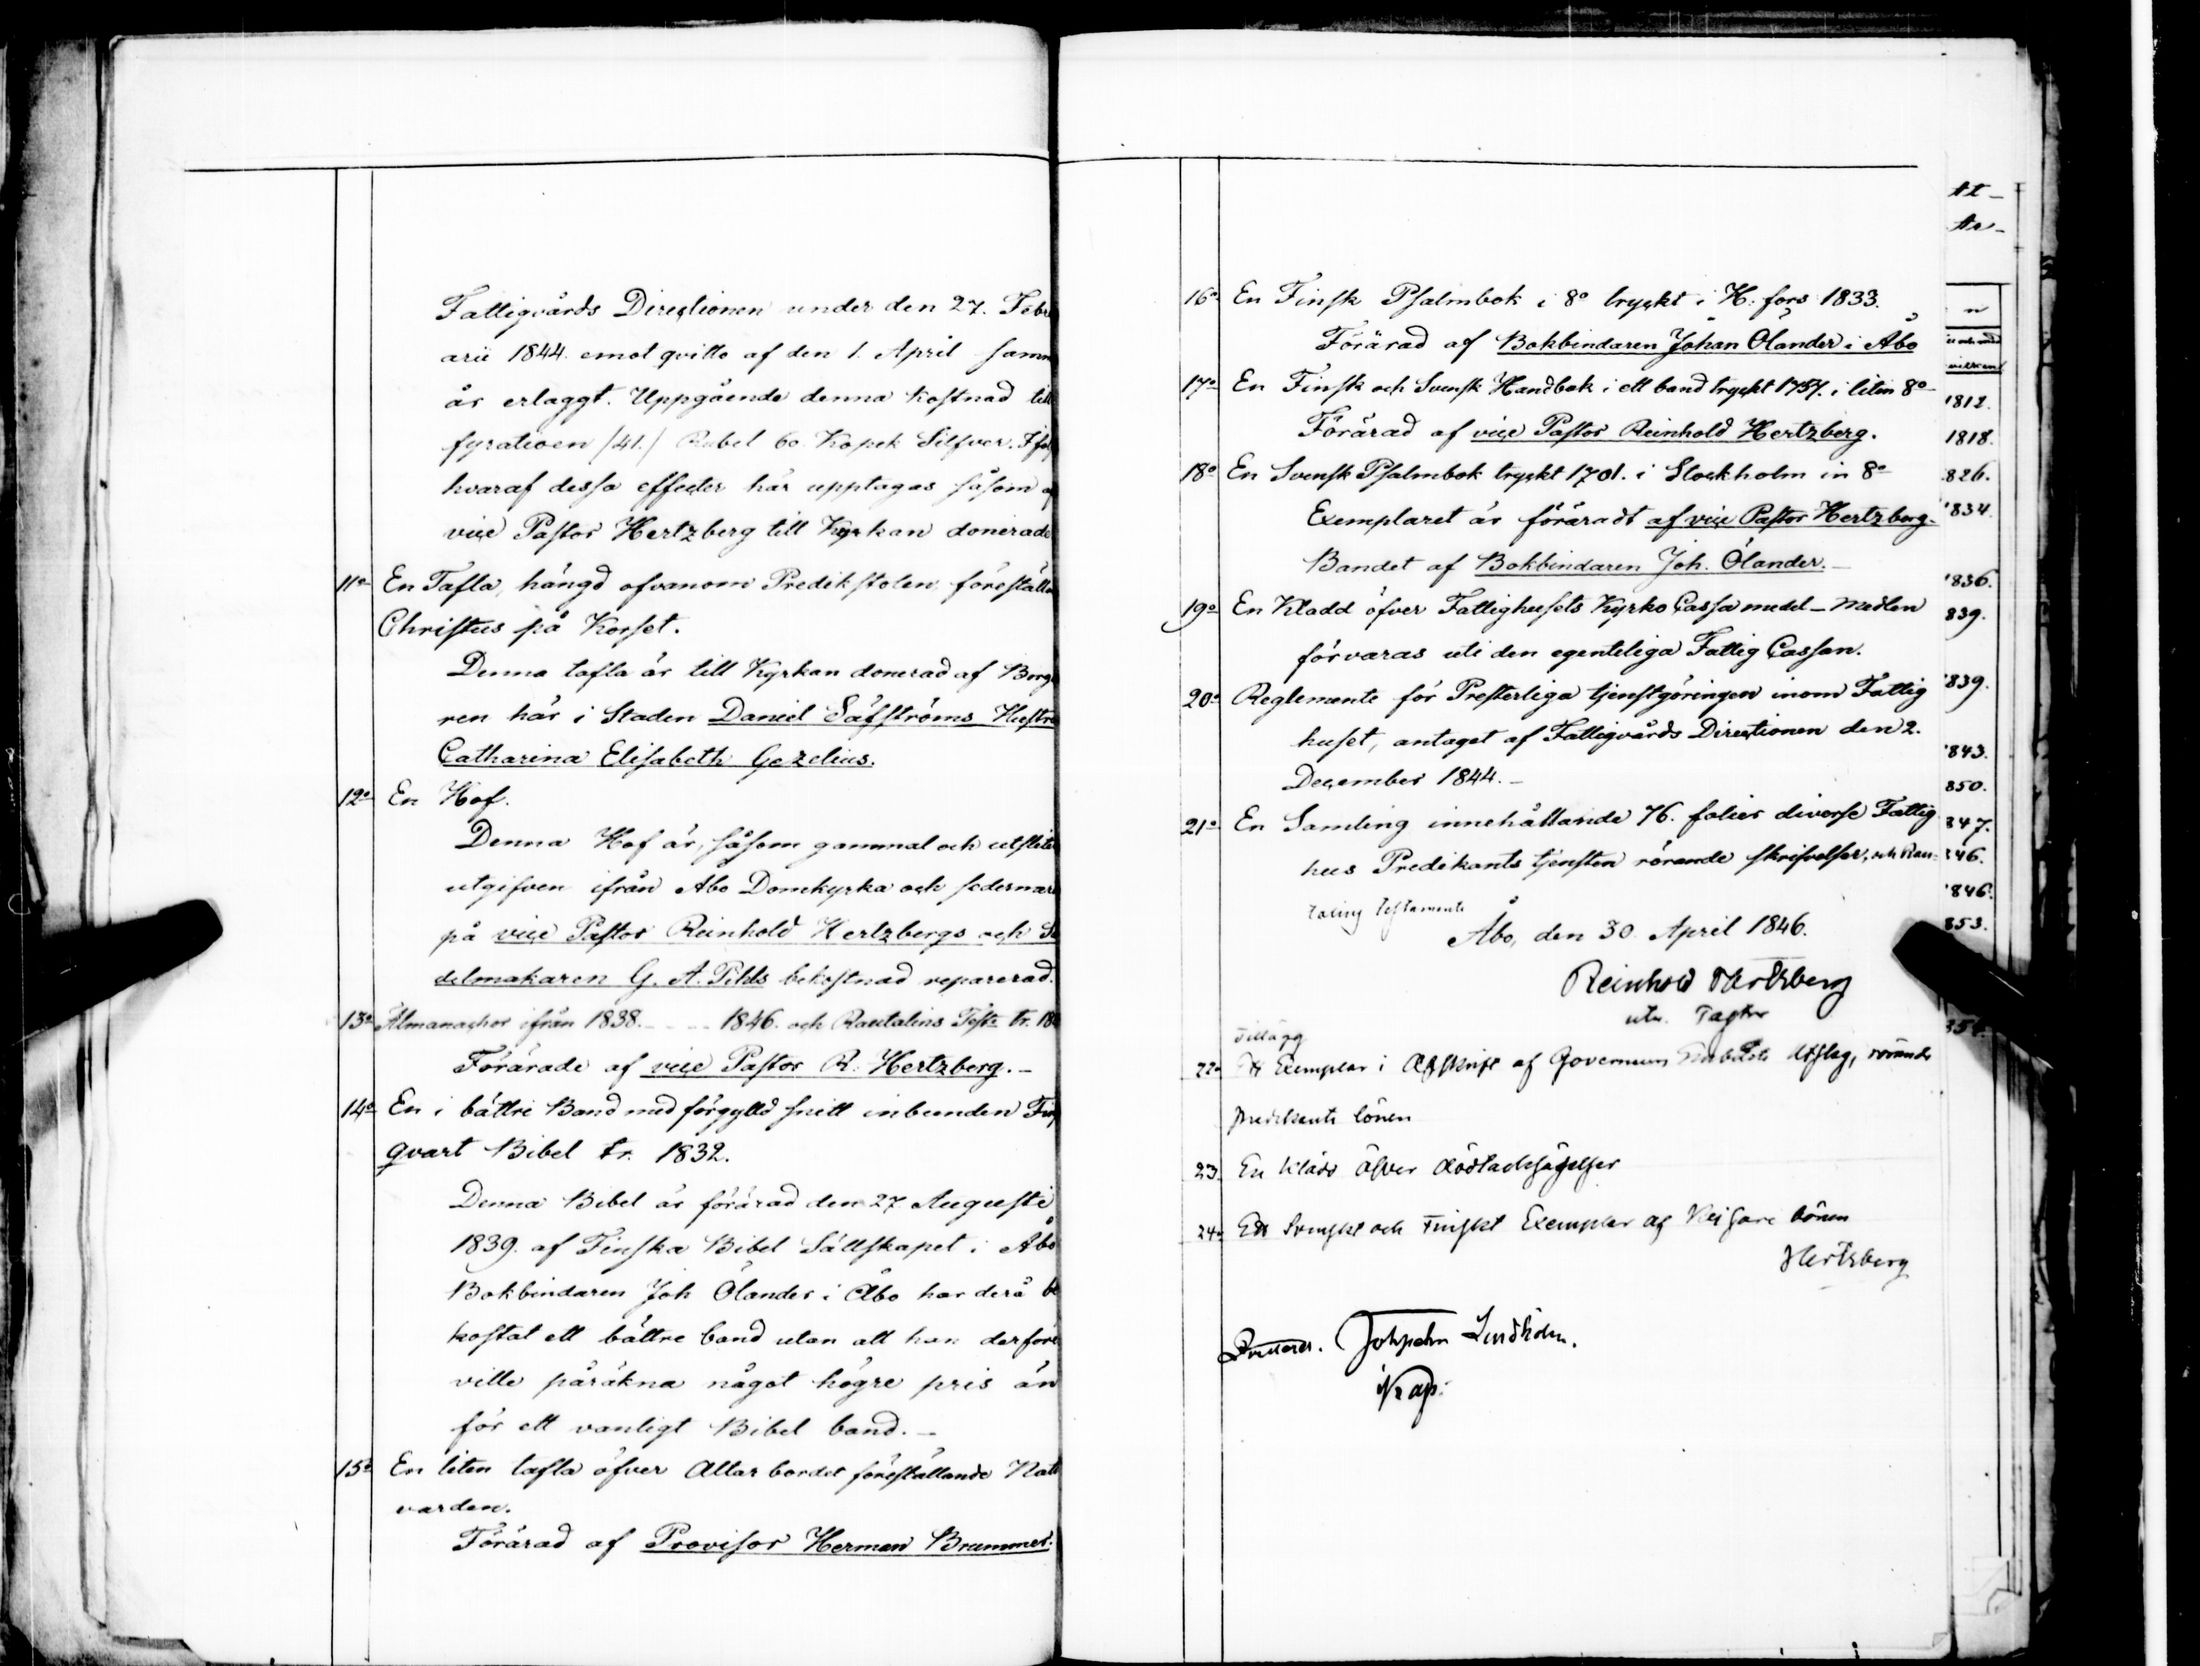 Fattigvårds Directionen under den 27. Febru
arii 1844. emot qvitto af den 1. April samm
år erlaggt. Uppgående denna kostnad till
fyratioen /41./ Rubel 60 Kopek Silfver. Iföl
hvaraf dessa effecter här upptagas såsom af
vice Pastor Hertzberg till Kyrkan donerade
11o En Tafla, hängd ofvanom Predikstolen föreställa
Christus på Korset.
Denna tafla är till Kyrkan donerad af Borga
ren här i Staden Daniel Säfströms Hustru
Catharina Elisabeth Gezelius.
12o En Hof.
Denna Hof är, såsom gammal och utsliten
utgifven ifrån Åbo Domkyrka och sedermera
på vice Pastor Reinhold Hertzbergs och Sa
delmakaren G. A. Pihls bekostnad reparerad.
13o Almanachor ifrån 1838. - - - 1846. och Rautalins Test. tr. 18
Förärade af vice Pastor R. Hertzberg. –
14o En i bättre Band med förgylld snitt inbunden Fin
qvart Bibel tr. 1832.
Denna Bibel är förärad den 27 Augusti
1839. af Finska Bibel Sällskapet i Åbo
Bokbindaren Joh Ölander i Åbo har derå be
kostat ett bättre band utan att han derföre
ville påräkna något högre pris än
för ett vanligt Bibel band. –
15o En liten tafla öfver Altar bordet föreställande Natt
varden.
Förärad af Provisor Herman Brummer.
16o En Finsk Psalmbok i 8o tryckt i H:fors 1833.
Förärad af Bokbindaren Johan Ölander i Åbo
17o En Finsk och Svensk Handbok i ett band tryckt 1757. i liten 8o
Förärad af vice Pastor Reinhold Hertzberg.
18o En Svensk Psalmbok tryckt 1701. i Stockholm in 8o
Exemplaret är föräradt af vice Pastor Hertzberg.
Bandet af Bokbindaren Joh. Ölander. –
19o En Kladd öfver Fattighusets Kyrko Cassa medel – Medlen
förvaras uti den egenteliga Fattig Cassan.
20o Reglemente för Presterliga tjenstgöringen inom Fattig
huset, antaget af Fattigvårds Directionen den 2.
December 1844. –
21o En Samling innehållande 76. folier diverse Fattig
hus Predikants tjensten rörande skrifvelser, och Rau=
taling testamente
Åbo, den 30 April 1846.
Reinhold Hertzberg
Pastor
Tillägg
22o Ett Exemplar i Afskrift af Utslag, rörande
Predikants lönen
23. En Kladd öfver dödtacksägelser
24o Ett Svenskt och Finskt Exemplar af Kejsare bönen
Hertzberg
Lindholm.
tt –
ta –
n
1812.
1818.
826.
1834.
1836.
839.
1839.
1843.
850.
847.
846.
1846.
853.